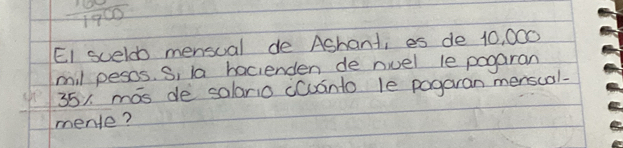 1900
El sueldo mensual de Ashanti es de 10,000
mil pesos. Si la hacienden de nivel le pagaran
35% más de salario ¿Cuánto le pagaran mensual-
mente?